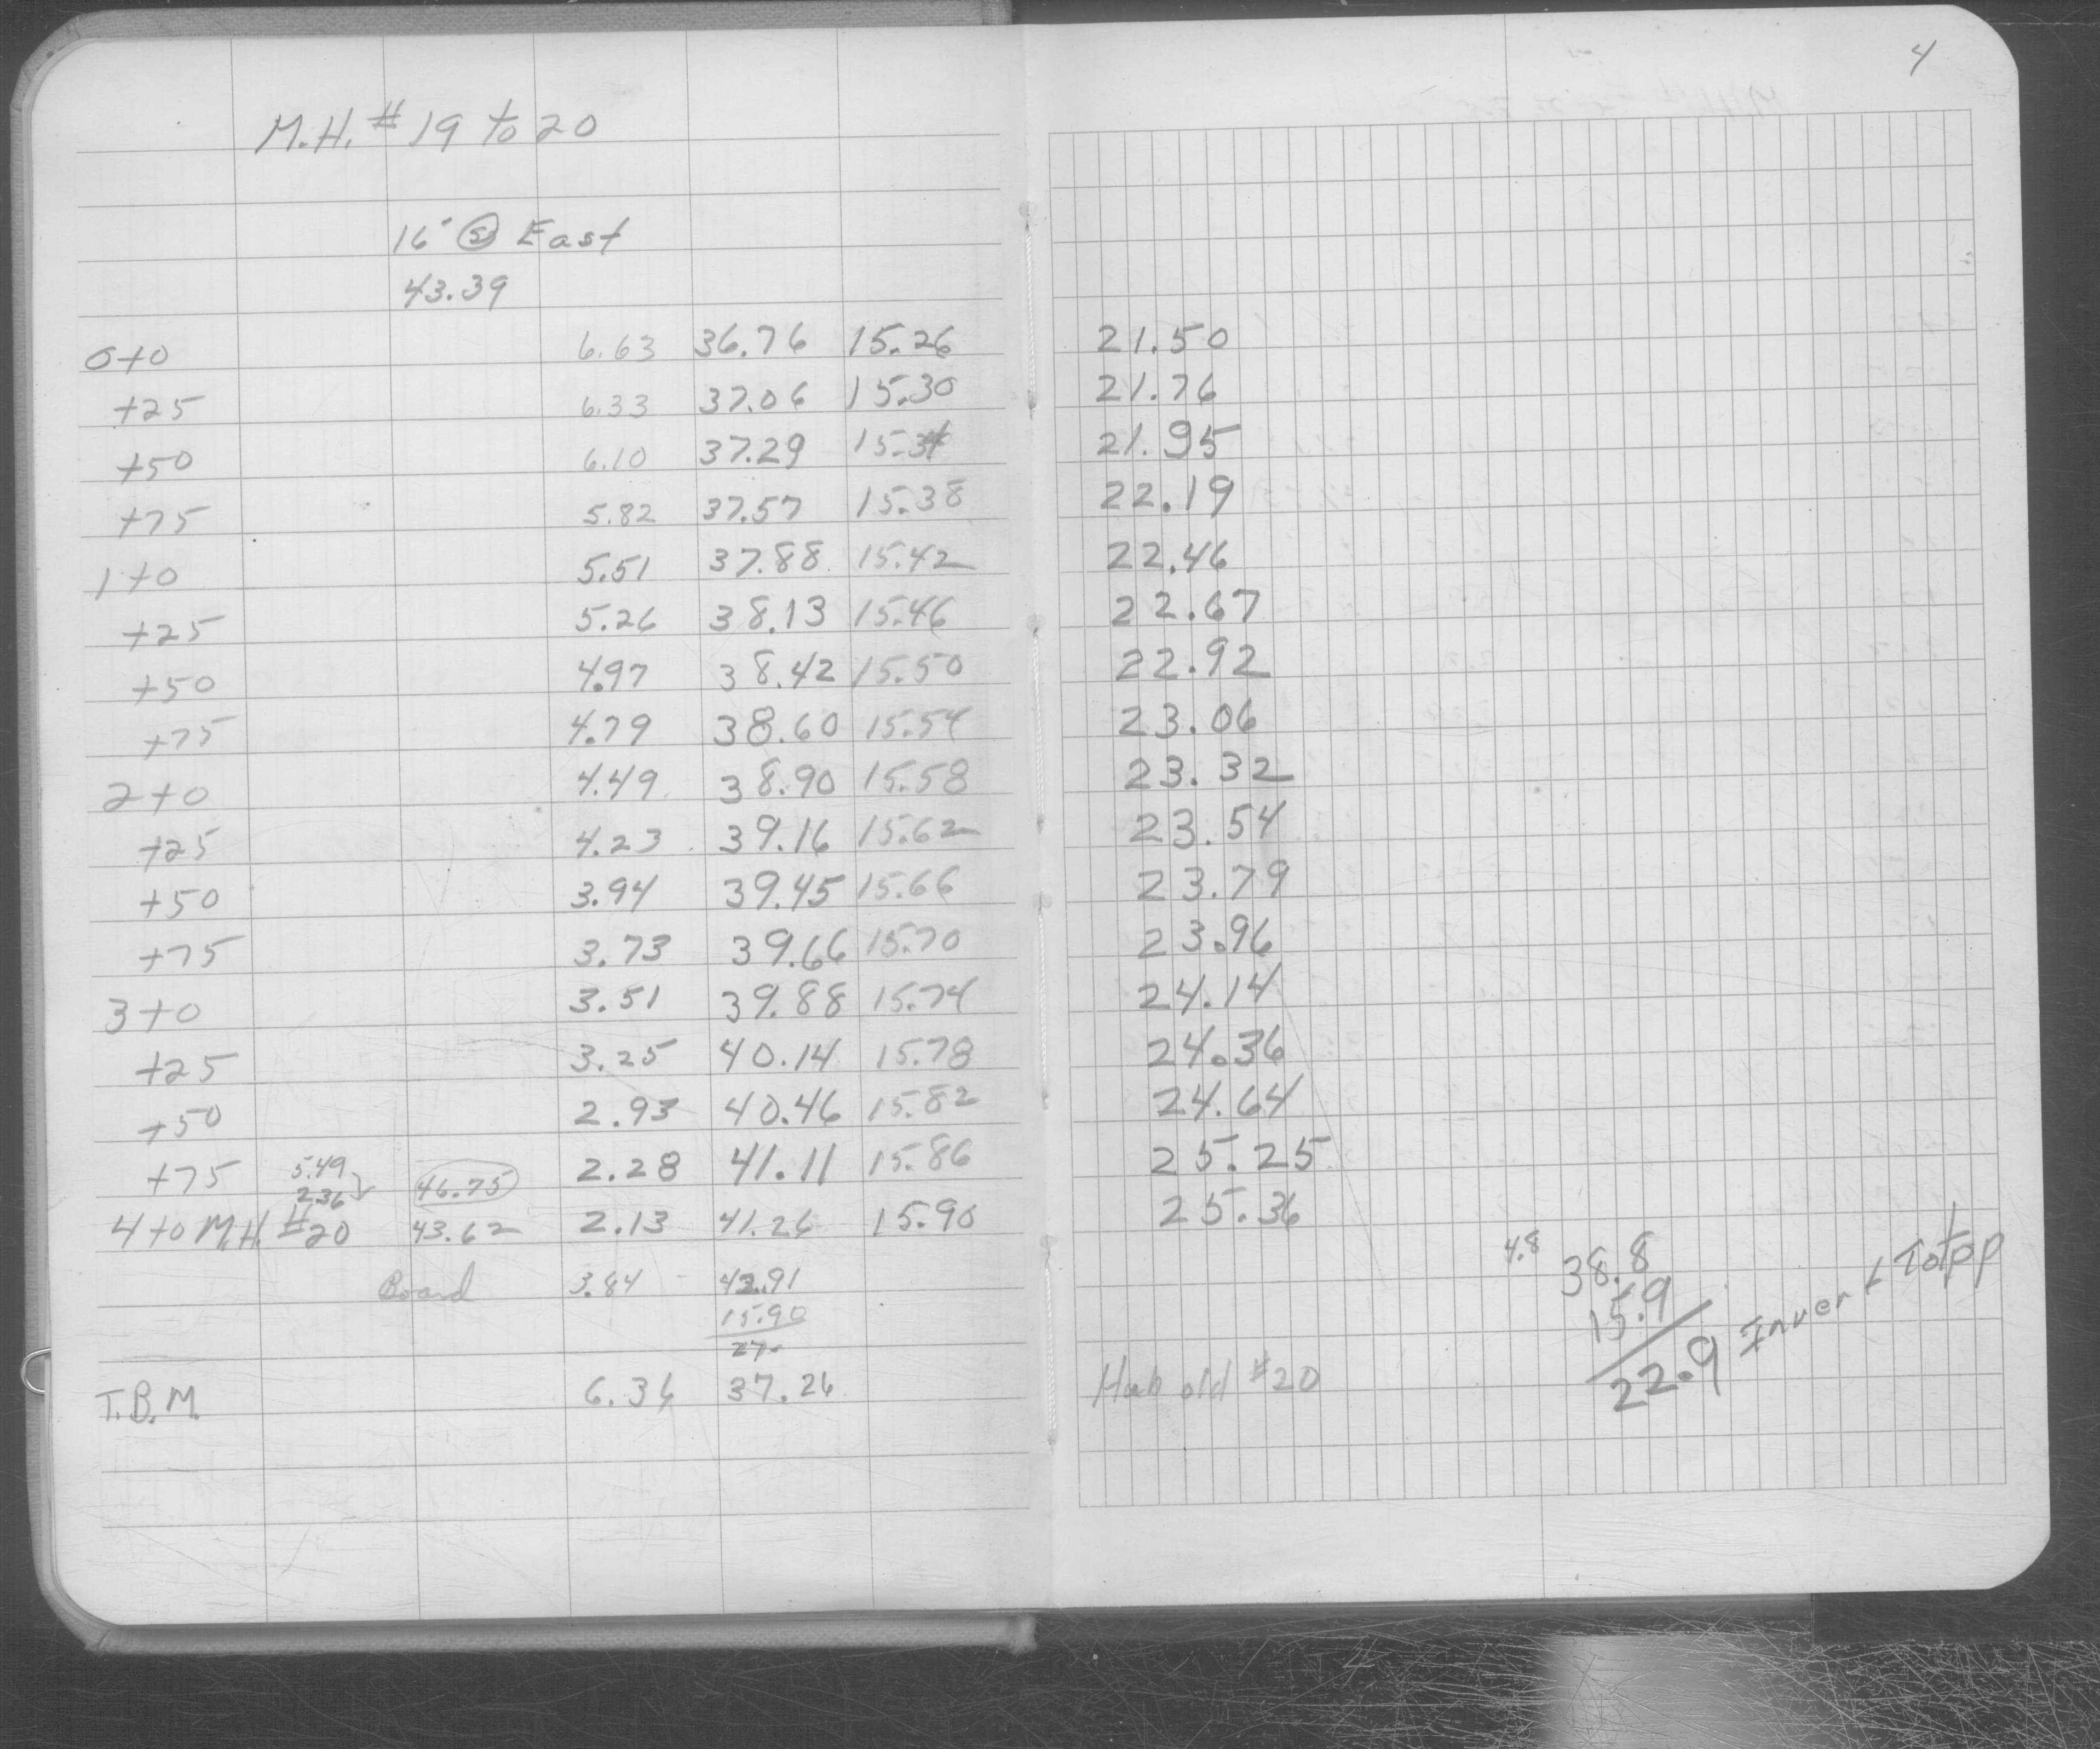 4
M.H. # 19 to 20
16" @ East
43.39
0+0 6.63 36.76 15.26 21.50
+25 6.33 37.06 15.30 21.76
+50 6.10 37.29 15.34 21.95
+75 5.82 37.57 15.38 22.19
1+0 5.51 37.88 15.42 22.46
+25 5.26 38.13 15.46 22.67
+50 4.97 38.42 15.50 22.92
+75 4.79 38.60 15.54 23.06
2+0 4.49 38.90 15.58 23.32
+25 4.23 39.16 15.62 23.54
+50 3.94 39.45 15.66 23.79
+75 3.73 39.66 15.70 23.96
3+0 3.51 39.88 15.74 24.14
+25 3.25 40.14 15.78 24.36
+50 2.93 40.46 15.82 24.64
+75 5.49 46.75 2.28 41.11 15.86 25.25
2.36
4+0 M.H. #20 43.62 2.13 41.26 15.90 25.36
4.8 38.8
Board 3.84 42.91
15.90 15.9
27.
22.9 Invert to Top
T.B.M. 6.36 37.26 Hub old #20